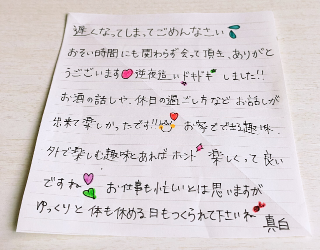 遅くなってしまってごめんなさい
おそい時間にも関わらず会って頂き、ありがと
うございます 逆夜這いドキドキしました!!
お酒の話しや、休日の過ごし方など お話しが
出来て楽しかったです!! お家でできる趣味、
外で楽しむ趣味とあればホント 楽しくって良い
ですね お仕事も忙しいとは思いますが
ゆっくりと体も休める日もつくられて下さいね
真白